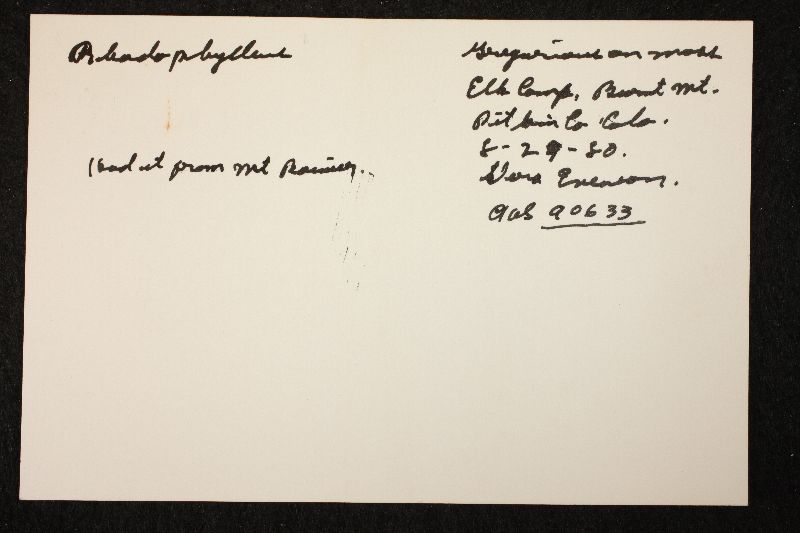 Rhodophyllus
had it from Mt Rainier.
Gregarious on moss
Elk Camp, Burnt Mt.
Pitkin Co Colo.
8-29-80.
Vera Evenson.
AHS 90633